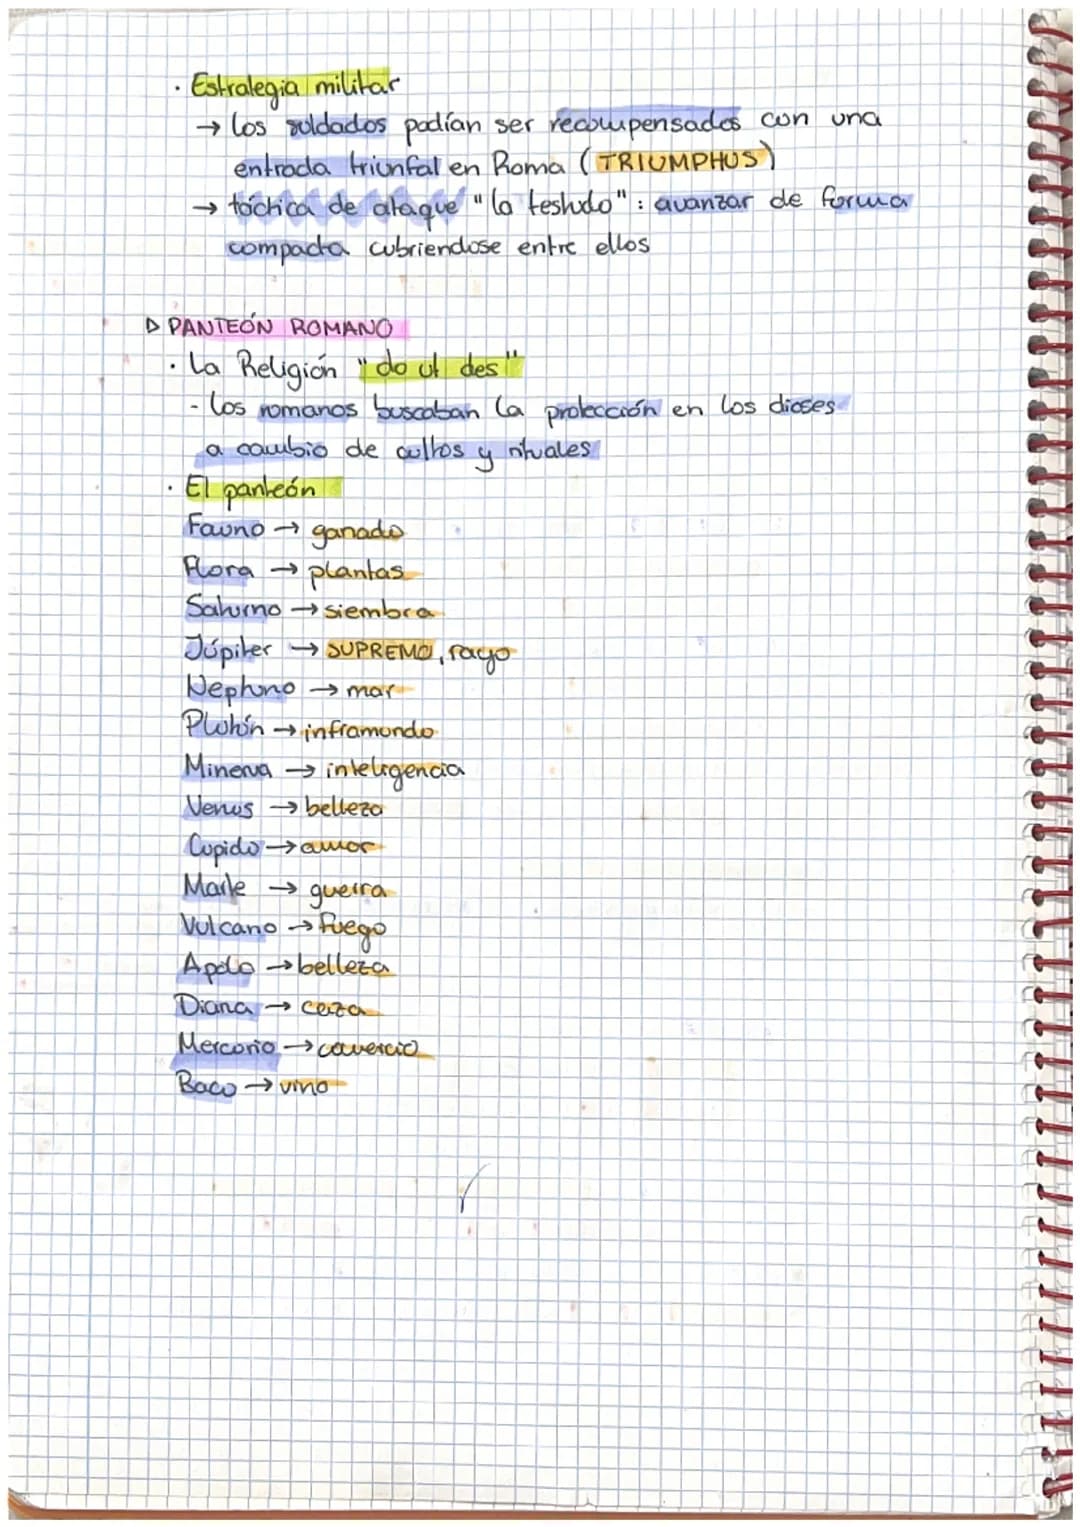 · Estrategia militar
→ Los soldados podían ser recompensados con una
entrada triunfal en Roma (TRIUMPHUS)
→ táctica de ataque "la testudo": avanzar de forma
compacta cubriendose entre ellos
▷ PANTEÓN ROMANO
· La Religión "do ut des"
- Los romanos buscaban la protección en los dioses
a cambio de cultos y rituales
· El panteón
Fauno → ganado
Flora → plantas
Saturno → siembra
Júpiter → SUPREMO, rayo
Neptuno → mar
Plutón → inframundo
Minerva → inteligencia
Venus → belleza
Cupido → amor
Marte → guerra
Vulcano → fuego
Apolo → belleza
Diana → caza
Mercurio → comercio
Baco → vino